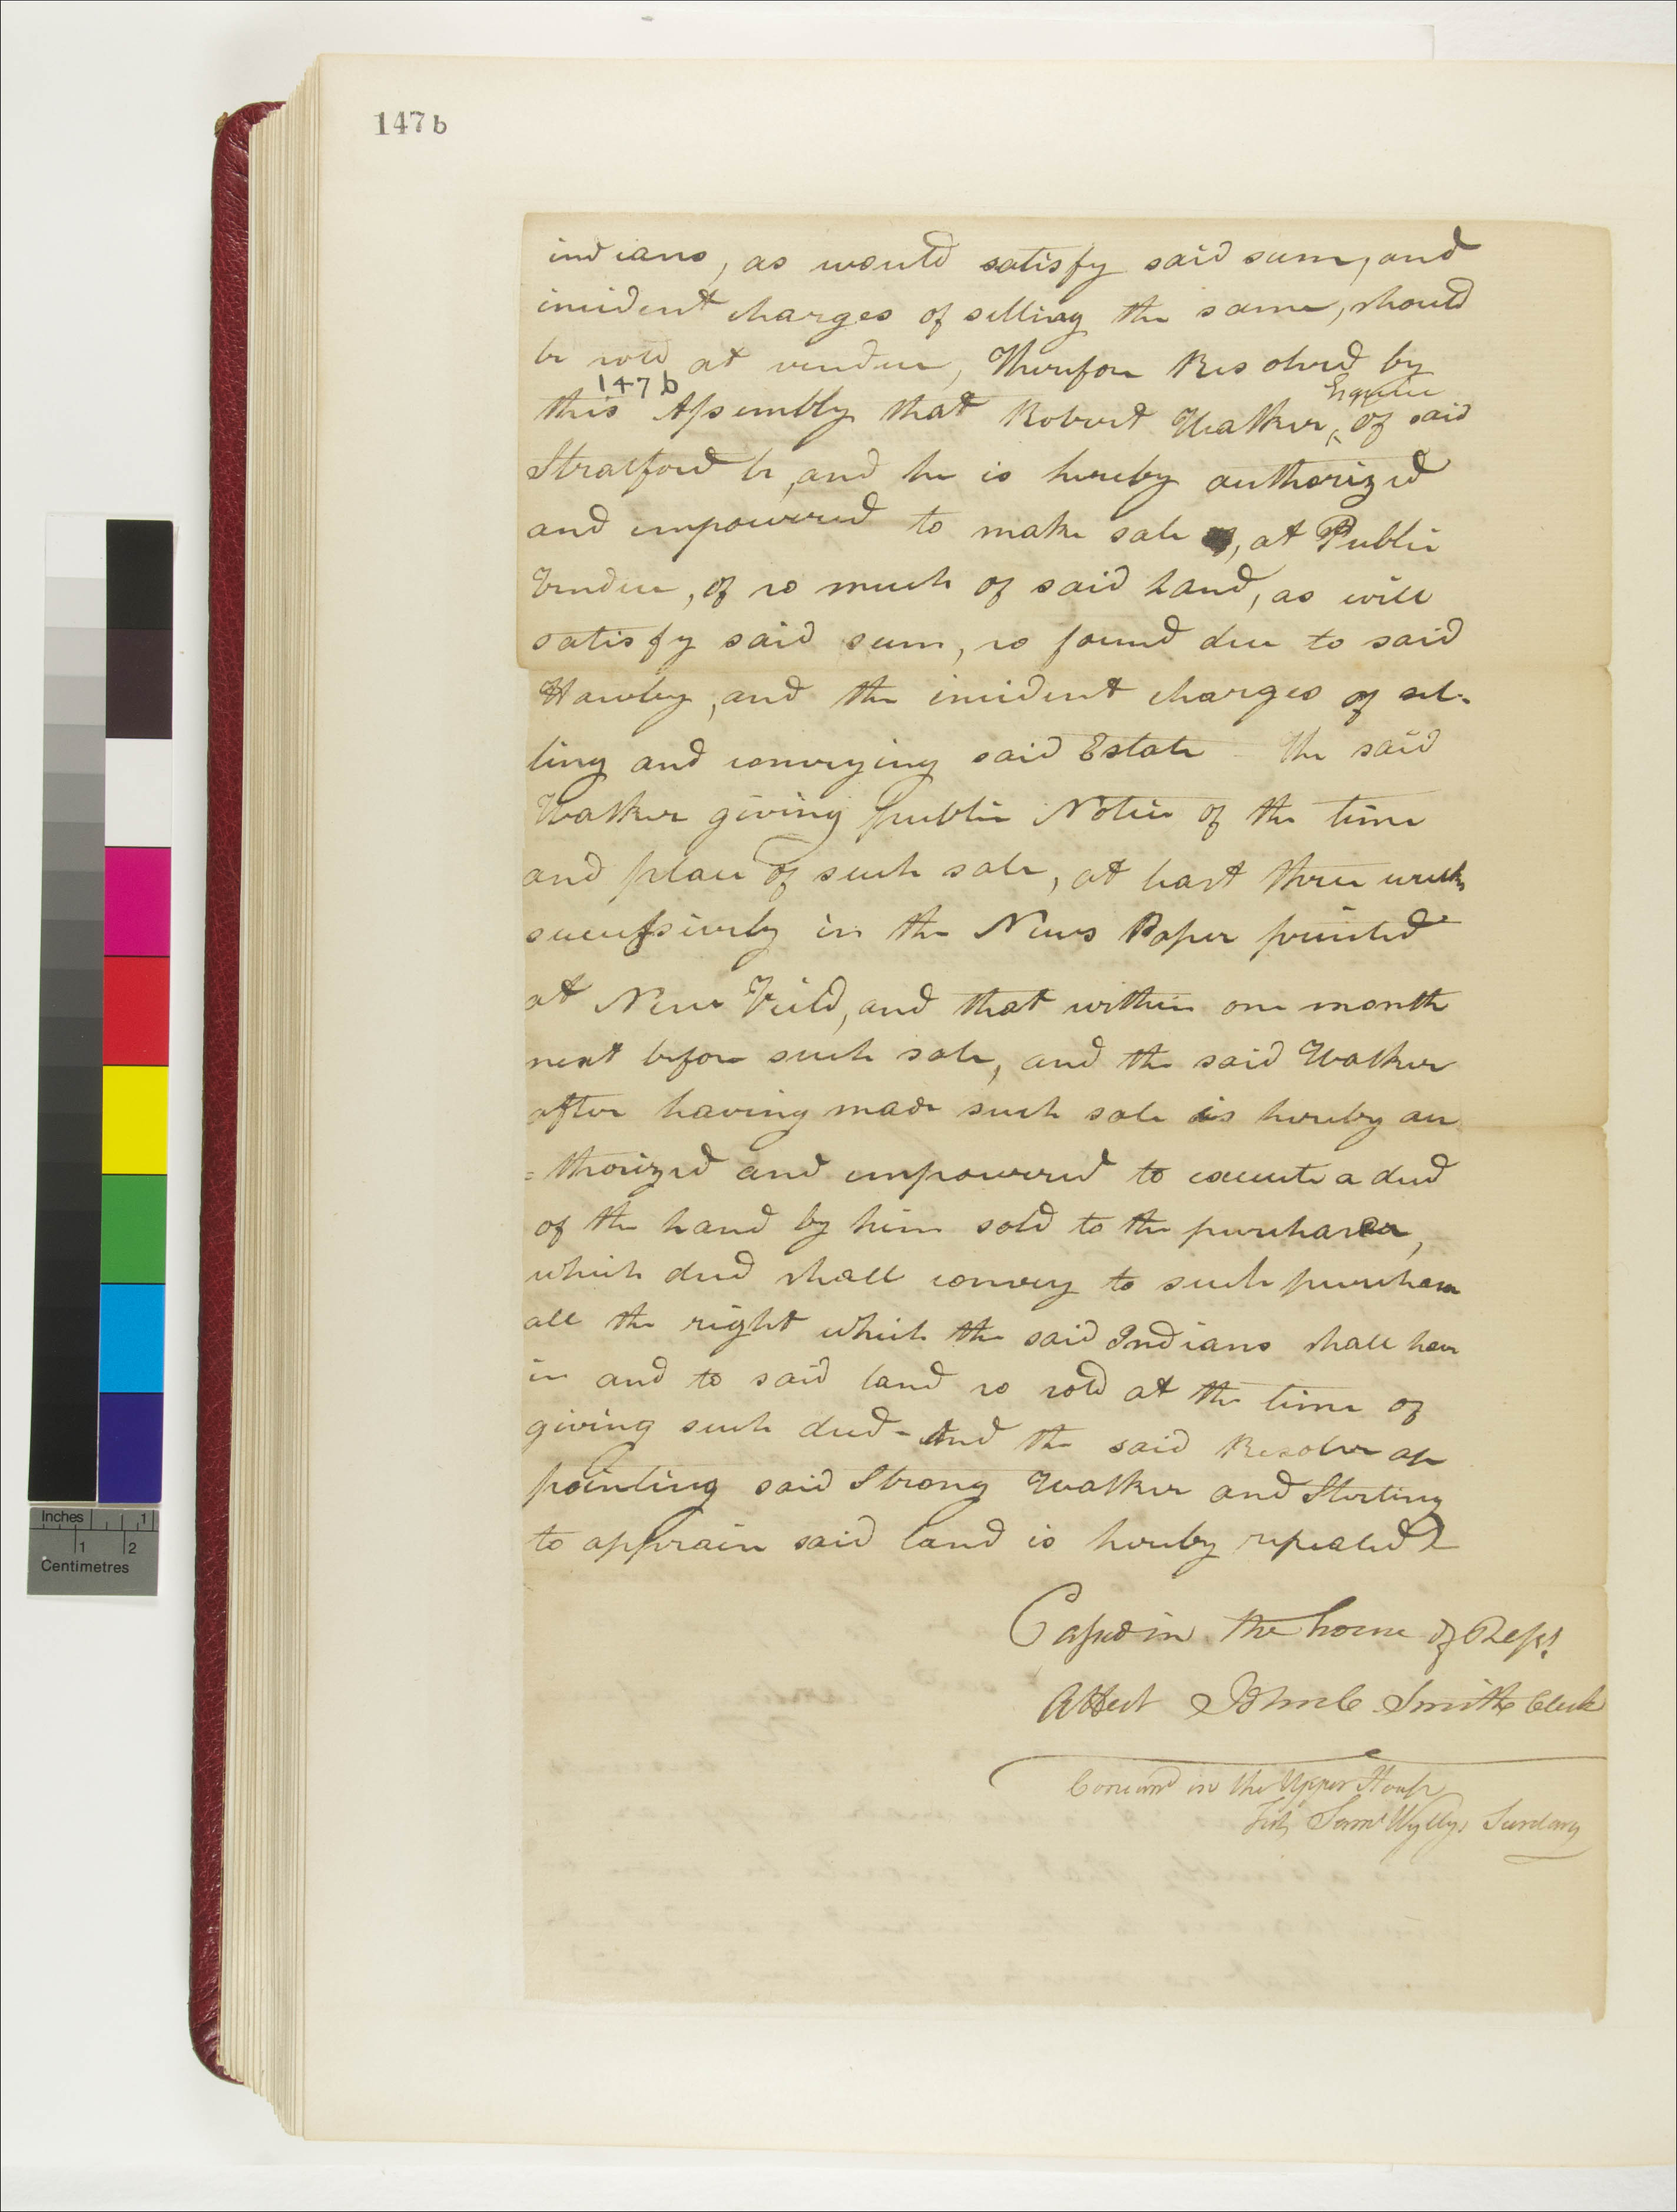 147 b
indians, as would satisfy said sum, and
incident charges of selling the same, should
be sold at vendue, Therefore Resolved by
147 b
Esquire
this Assembly that Robert Walker, of said
Stratford be, and he is hereby authorized
and empowered to make sale, at Public
Vendue, of so much of said Land, as will
satisfy said sum, so found due to said
Hawley, and the incident charges of sel-
ling and conveying said Estate - The said
Walker giving public Notice of the time
and place of such sale, at least three weeks
successively in the News Paper printed
at New Field, and that within one month
next before such sale, and the said Walker
after having made such sale is hereby au
=thorized and empowered to execute a deed
of the Land by him sold to the purchaser,
which deed shall convey to such purchaser
all the right which the said Indians shall have
in and to said land so sold at the time of
giving such deed - And the said Resolve ap
pointing said Strong Walker and Sterling
to appraise said land is hereby repealed
Passed in the house of Reps.
Attest John C Smith Clerk
Concurred in the Upper House
Test Saml Wyllys Secretary
Inches 1
1 2
Centimetres